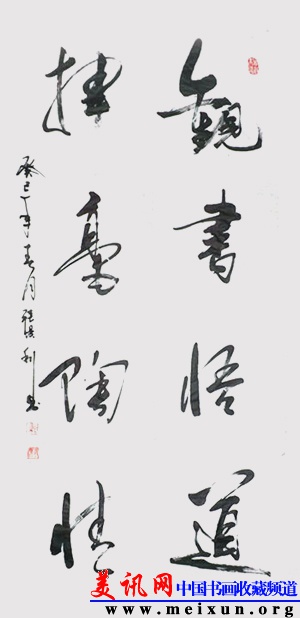 觀書悟道
揮毫陶情
癸巳年春月
美讯网 中国书画收藏频道
www.meixun.org